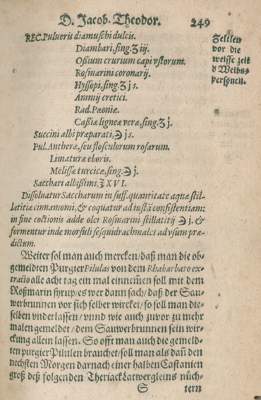 D. Jacob. Theodor. 249
REC. Pulveris diamuschi dulcis.
Diambari, sing. ʒ iij.
Ossium crurium capi ustorum.
Rosmarini coronarij.
Hyssopi, sing. ʒ j s.
Ammij cretici.
Rad. Pæoniæ.
Cassiæ ligneæ veræ, sing. ℈ j.
Succini albi præparati, ℈ j s.
Pul. Antheræ, seu flosculorum rosarum.
Limaturæ eboris.
Melissæ turcicæ, sing. ℈ j.
Sacchari albissimi, ℥ XVI.
Dissoluatur Saccharum in suff. quantitate aquæ stil-
latitiæ cinnamomi, & coquatur ad iustā consistentiam:
in fine coctionis adde olei Rosmarini stillatitij ℈ j. &
formentur inde morsuli sesquidrachmales ad usum præ-
dictum.
Zeltlen
vor die
weisse zeit
d Weibus
personen.
Weiter sol man auch mercken / daß man die ob-
gemeldten Purgier Pilulas von dem Rhabarbaro ex-
acht tag ein mal einnemen soll mit dem
Rosmarin syrup / es wer dann sach / daß der Sau-
werbrunnen vor sich selber wircket / so soll man die-
selben underlassen / unnd wie auch zuvor zu mehr
malen gemeldet / dem Sauwerbrunnen sein wirc-
kung allein lassen. So offt man auch die gemeld-
ten purgier Pilulen brauchet / soll man als dañ den
nechsten Morgen darnach einer halben Castanien
groß deß folgenden Theriack Latwergleins nüch-
S tern